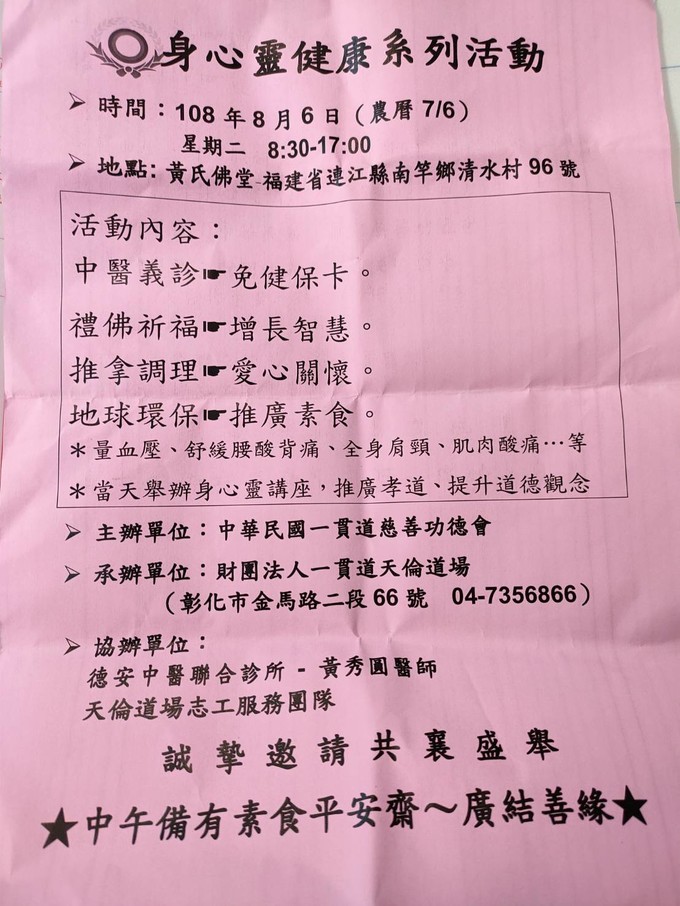 身心靈健康系列活動
➢ 時間：108 年 8 月 6 日（農曆 7/6）
星期二 8:30-17:00
➢ 地點: 黃氏佛堂-福建省連江縣南竿鄉清水村 96 號
活動內容：
中醫義診☛免健保卡。
禮佛祈福☛增長智慧。
推拿調理☛愛心關懷。
地球環保☛推廣素食。
＊量血壓、舒緩腰酸背痛、全身肩頸、肌肉酸痛…等
＊當天舉辦身心靈講座，推廣孝道、提升道德觀念
➢ 主辦單位：中華民國一貫道慈善功德會
➢ 承辦單位：財團法人一貫道天倫道場
（彰化市金馬路二段 66 號 04-7356866）
➢ 協辦單位：
德安中醫聯合診所 - 黃秀圓醫師
天倫道場志工服務團隊
誠摯邀請共襄盛舉
★中午備有素食平安齋～廣結善緣★